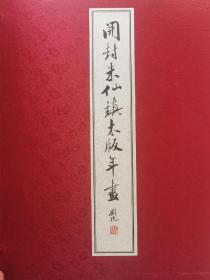 開封朱仙鎮木版年畫